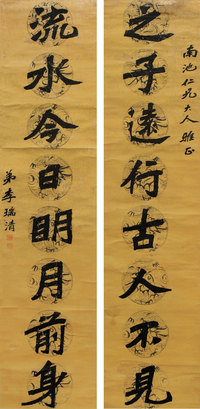 南池仁兄大人雅正
之子远行古人不见
流水今日明月前身
弟李瑞清